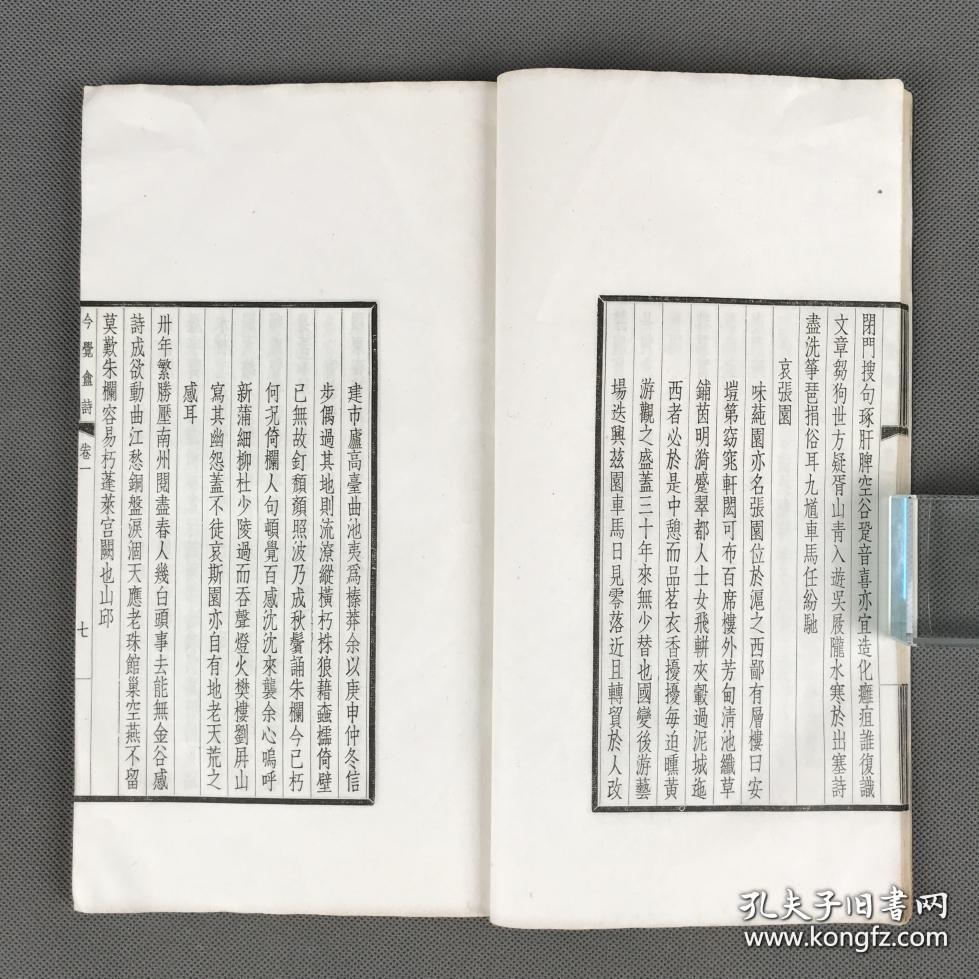 閉門搜句琢肝脾空谷跫音喜亦宜造化癰疽誰復識
文章芻狗世方疑胥山靑入遊吳屐隴水寒於出塞詩
盡洗箏琶捐俗耳九馗車馬任紛馳
哀張園
味蒓園亦名張園位於滬之西鄙有層樓曰安
塏第窈窕軒閎可布百席樓外芳甸淸池纖草
鋪茵明漪蹙翠都人士女飛軿夾轂過泥城迤
西者必於是中憩而品茗衣香擾擾每迫曛黃
游觀之盛蓋三十年來無少替也國變後游藝
場迭興茲園車馬日見零落近且轉貿於人改
建市廬高臺曲池夷爲榛莽余以庚申仲冬信
步偶過其地則流潦縱橫朽株狼藉蠧檽倚壁
已無故釘頽顏照波乃成秋鬢誦朱欄今已朽
何况倚欄人句頓覺百感沈沈來襲余心嗚呼
新蒲細柳杜少陵過而吞聲燈火樊樓劉屛山
寫其幽怨蓋不徒哀斯園亦自有地老天荒之
感耳
卅年繁勝壓南州閱盡春人幾白頭事去能無金谷感
詩成欲動曲江愁銅盤淚涸天應老珠館巢空燕不留
莫歎朱欄容易朽蓬萊宮闕也山邱
今覺盦詩
卷一
七
孔夫子旧书网
www.kongfz.com